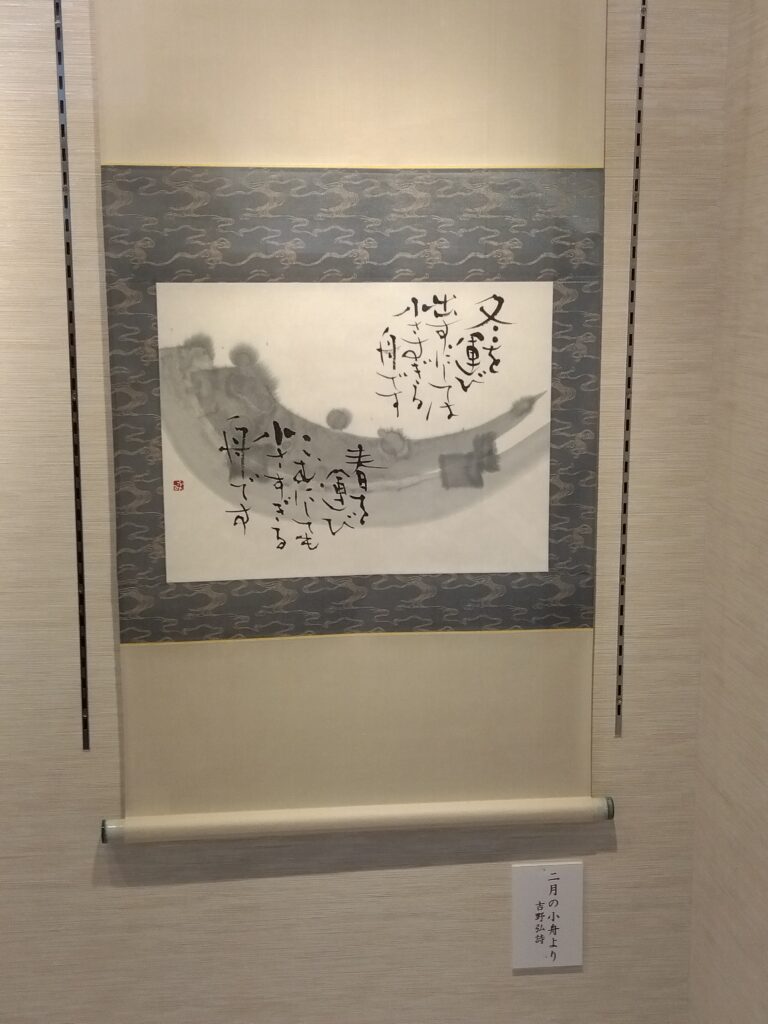 冬を運び
出すにしては
小さすぎる
舟です
春を運び
こむにしても
小さすぎる
舟です
二月の小舟より
吉野弘詩